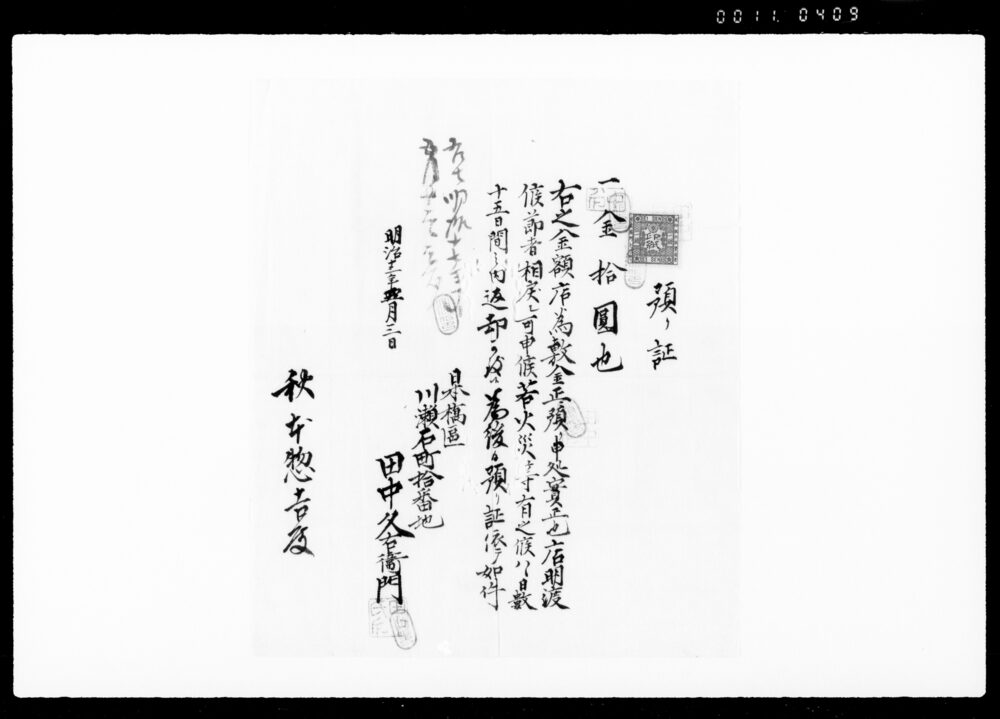 0011.0409
預り証
一金拾圓也
右之金額店為敷金正預り申処實正也店明渡
候節者相戻し可申候若火災等有之候ハヽ日數
十五日間之内返却可致候為後日預り証依テ如件
明治十二年五月三日
日本橋區
川瀬石町拾番地
田中久右衞門
秋本惣吉殿